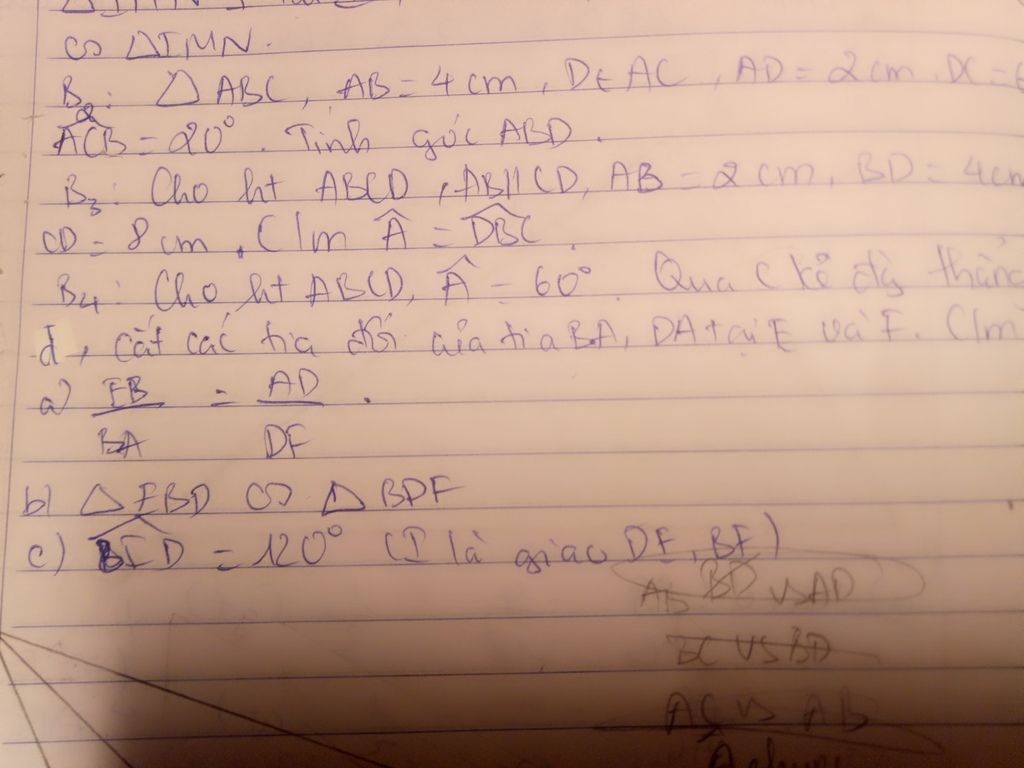 ∽ ΔIMN.
B₂: Δ ABC, AB = 4cm, D∈AC, AD = 2cm. DC = 6
ACB = 20°. Tính góc ABD.
B₃: Cho ht ABCD, AB//CD, AB = 2cm, BD = 4cm
CD = 8cm. C/m Â = DBC.
B₄: Cho ht ABCD, Â = 60°. Qua C kẻ đg thẳng
d, cắt các tia đối của tia BA, DA tại E và F. C/m
a) EB/BA = AD/DF.
b) Δ EBD ∽ Δ BDF
c) BID = 120° (I là giao DE, BF)
AB BD vs AD
BC vs BD
AC vs AB